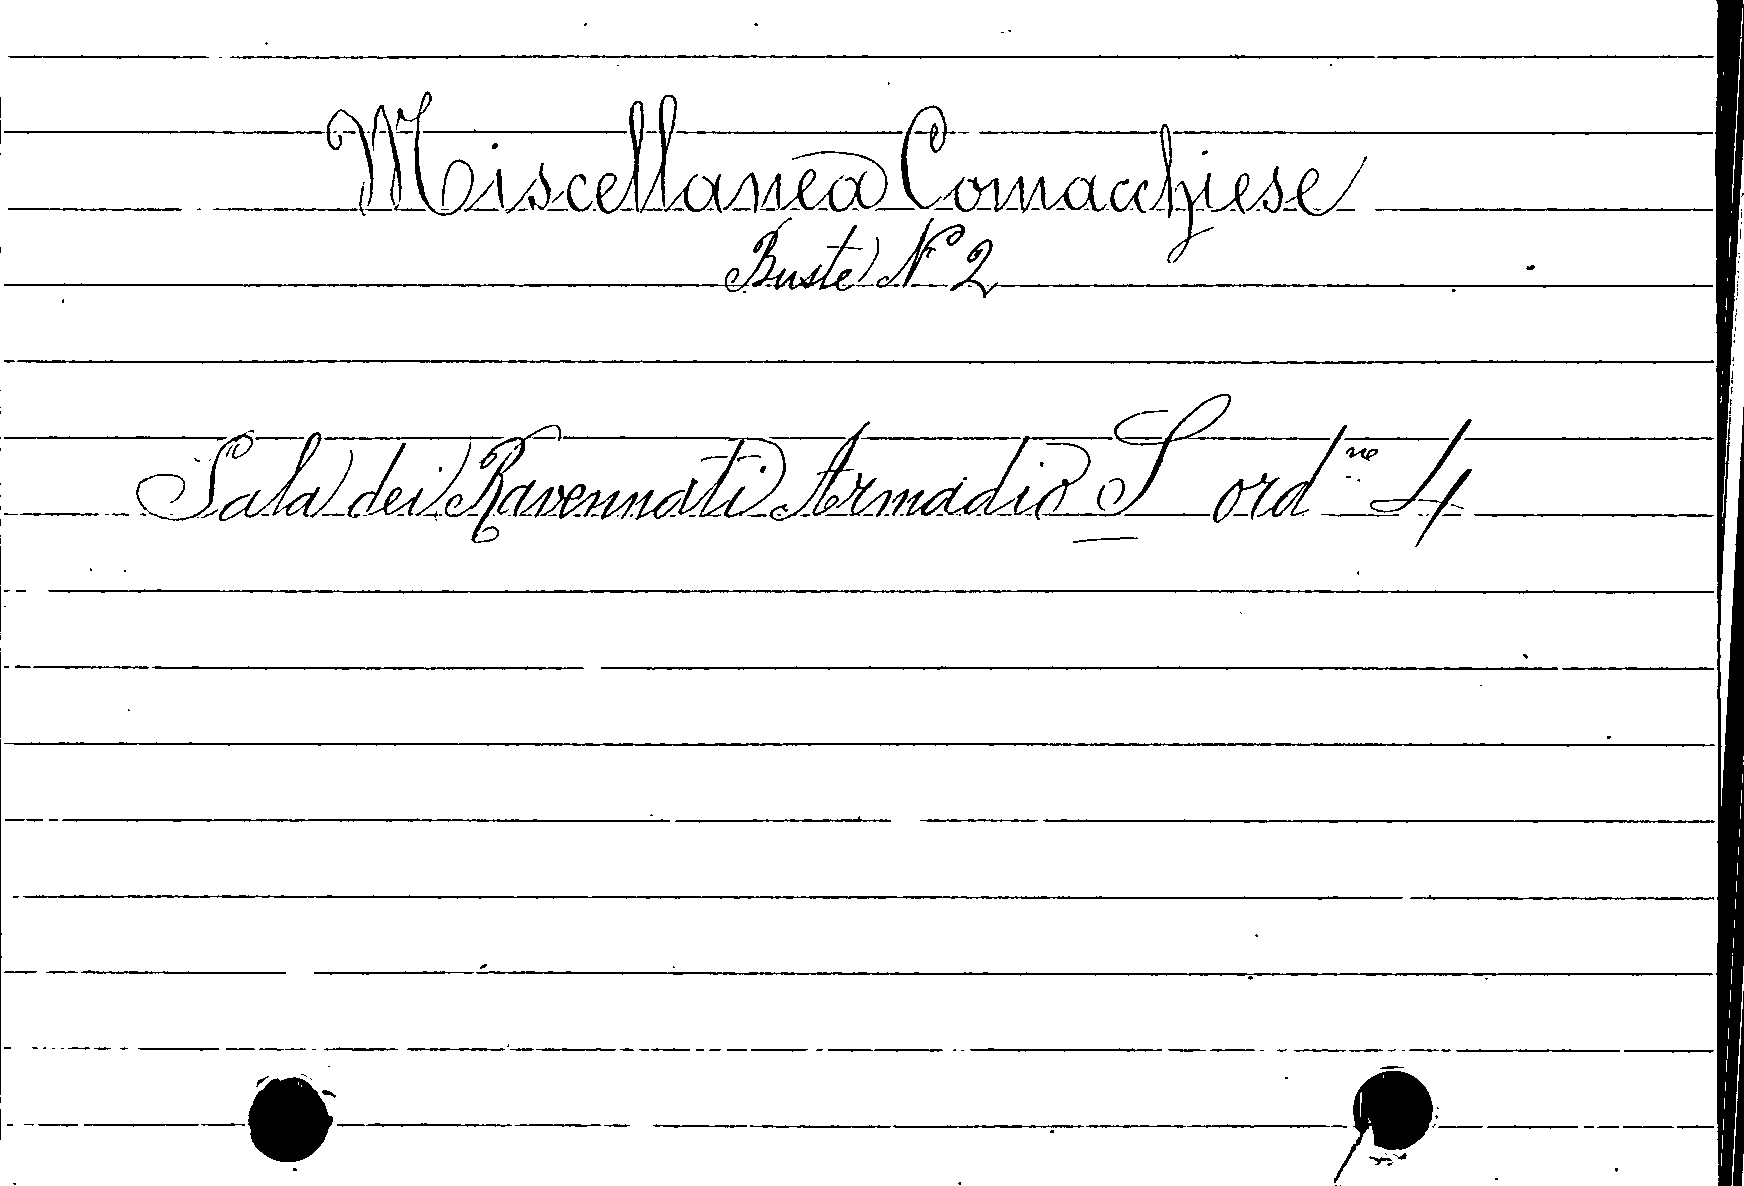 Miscellanea Comacchiese
Buste N° 2
Sala dei Ravennati Armadio S ord.ne 4